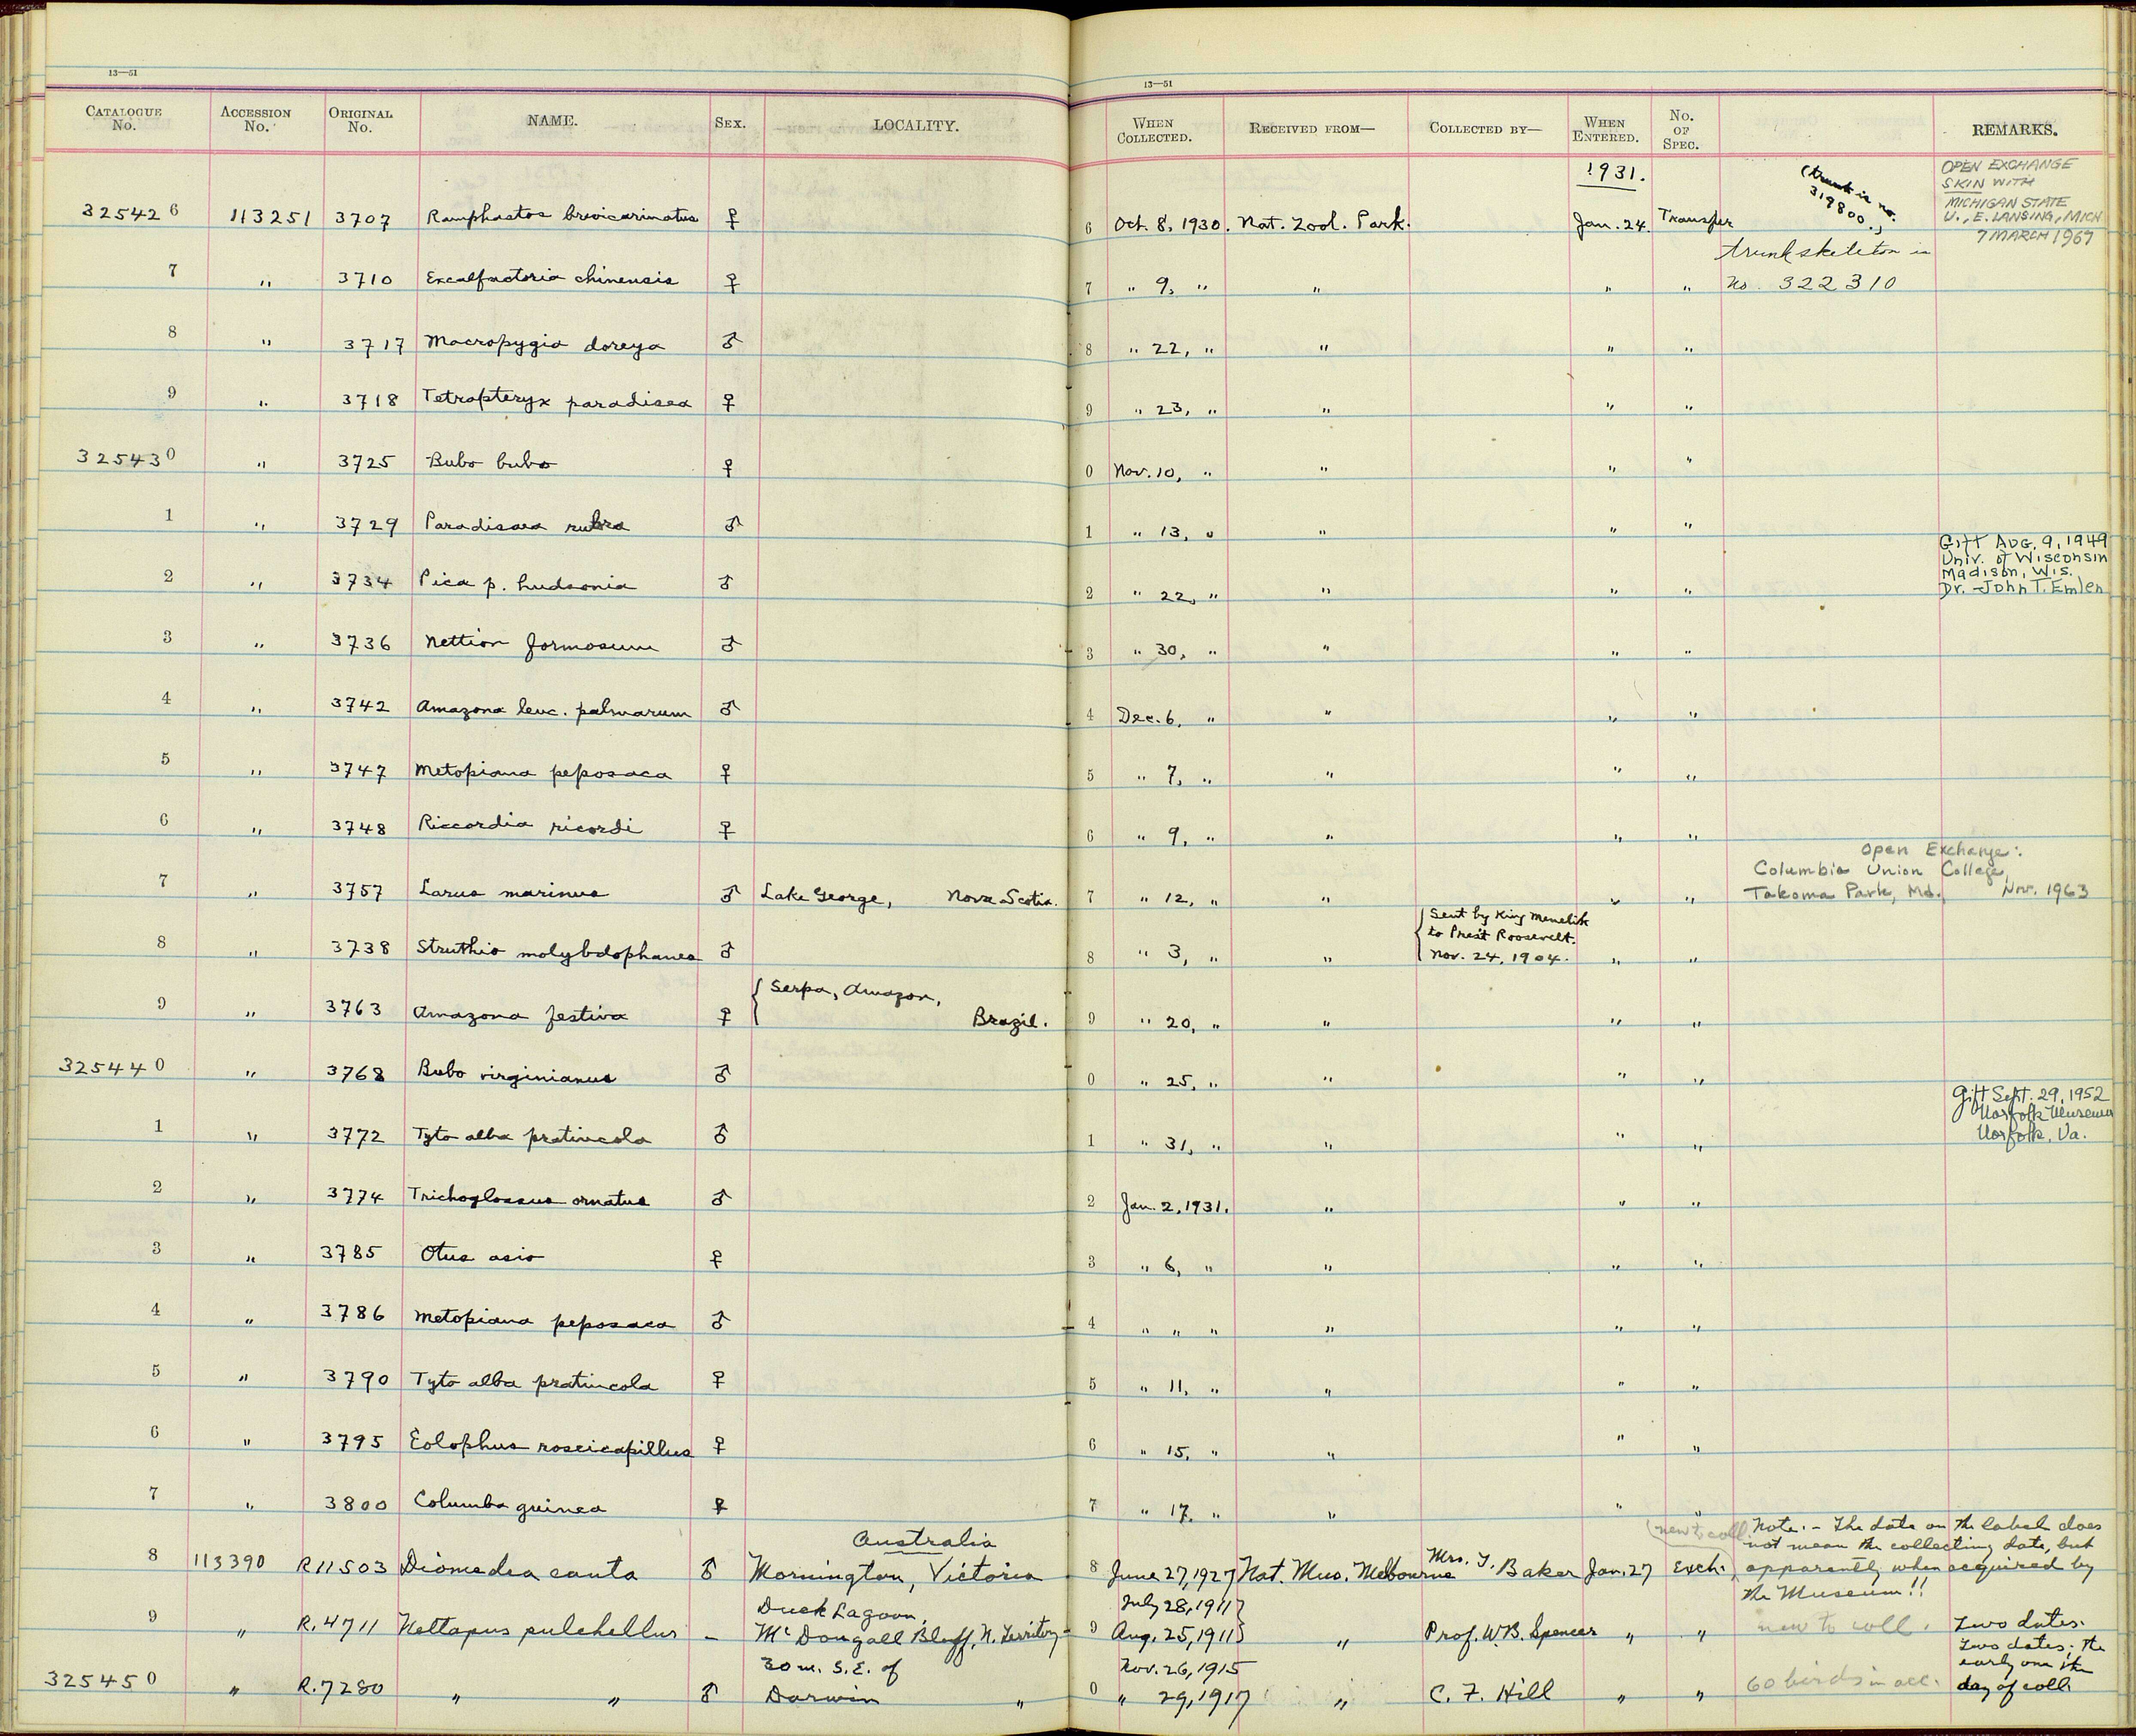 13—51
13—51
CATALOGUE No. ACCESSION No. ORIGINAL No. NAME. SEX. LOCALITY. WHEN COLLECTED. RECEIVED FROM— COLLECTED BY— WHEN ENTERED. No. OF SPEC. REMARKS.
1931.
(trunk is no. 319800.)
OPEN EXCHANGE
SKIN WITH
MICHIGAN STATE
U., E. LANSING, MICH
7 MARCH 1967
325426 113251 3707 Ramphastos brevicarinatus ♀ 6 Oct. 8, 1930. Nat. Zool. Park. Jan. 24. Transfer
trunk skeleton in
7 " 3710 Excalfactoria chinensis ♀ 7 " 9, " " " " No. 322310
8 " 3717 Macropygia doreya ♂ 8 " 22, " " " "
9 " 3718 Tetropteryx paradisea ♀ 9 " 23, " " " "
325430 " 3725 Bubo bubo ♀ 0 Nov. 10, " " " "
1 " 3729 Paradisaea rubra ♂ 1 " 13, " " " "
Gift AUG. 9, 1949
Univ. of Wisconsin
Madison, Wis.
Dr. John T. Emlen
2 " 3734 Pica p. hudsonia ♂ 2 " 22, " " " "
3 " 3736 Nettion formosum ♂ 3 " 30, " " " "
4 " 3742 Amazona leuc. palmarum ♂ 4 Dec. 6, " " " "
5 " 3747 Metopiana peposaca ♀ 5 " 7, " " " "
6 " 3748 Riccordia ricordi ♀ 6 " 9, " " " "
Open Exchange:
Columbia Union College,
Takoma Park, Md., Nov. 1963
7 " 3757 Larus marinus ♂ Lake George, Nova Scotia. 7 " 12, " " " "
Sent by King Menelik
to Pres't Roosevelt.
Nov. 24, 1904.
8 " 3738 Struthio molybdophanes ♂ 8 " 3, " " " "
Serpa, Amazon,
9 " 3763 Amazona festiva ♀ Brazil. 9 " 20, " " " "
325440 " 3768 Bubo virginianus ♂ 0 " 25, " " " "
Gift Sept. 29, 1952
Norfolk Museum
Norfolk, Va.
1 " 3772 Tyto alba pratincola ♂ 1 " 31, " " " "
2 " 3774 Trichoglossus ornatus ♂ 2 Jan. 2, 1931. " " "
3 " 3785 Otus asio ♀ 3 " 6, " " " "
4 " 3786 Metopiana peposaca ♂ 4 " " " " " "
5 " 3790 Tyto alba pratincola ♀ 5 " 11, " " " "
6 " 3795 Eolophus roseicapillus ♀ 6 " 15, " " " "
7 " 3800 Columba guinea ♀ 7 " 17, " " " "
Australia
(new to coll. Note:- The date on the label does
not mean the collecting date, but
8 113390 R11503 Diomedea cauta ♂ Mornington, Victoria 8 June 27, 1927 Nat. Mus. Melbourne Mrs. T. Baker Jan. 27 Exch. apparently when acquired by
the Museum!!
Duck Lagoon, July 28, 1911}
9 " R.4711 Nettapus pulchellus – McDougall Bluff, N. Territory 9 Aug. 25, 1911} " Prof. W.B. Spencer " " new to coll. Two dates.
30 m. S.E. of Nov. 26, 1915 Two dates; the
early one the
325450 " R.7280 " " ♂ Darwin " 0 " 29, 1917 " C. F. Hill " " 60 birds in acc. day of coll.